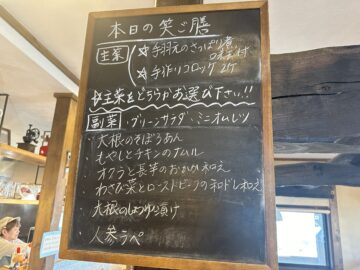 本日の笑ご膳
主菜 ☆手羽元のさっぱり煮
☆手作りコロッケ 2ケ
☆主菜をどちらかお選び下さい!!
副菜 ・グリーンサラダ・ミニオムレツ
・大根のそぼろあん
・もやしとチキンのナムル
・オクラと長芋のおかか和え
・わさび菜とローストビーフの和ドレ和え
・大根のしょうゆ漬け
・人参ラペ